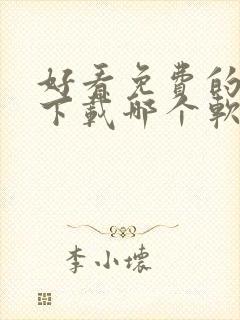 好看免费的
下载哪个软
李小壞